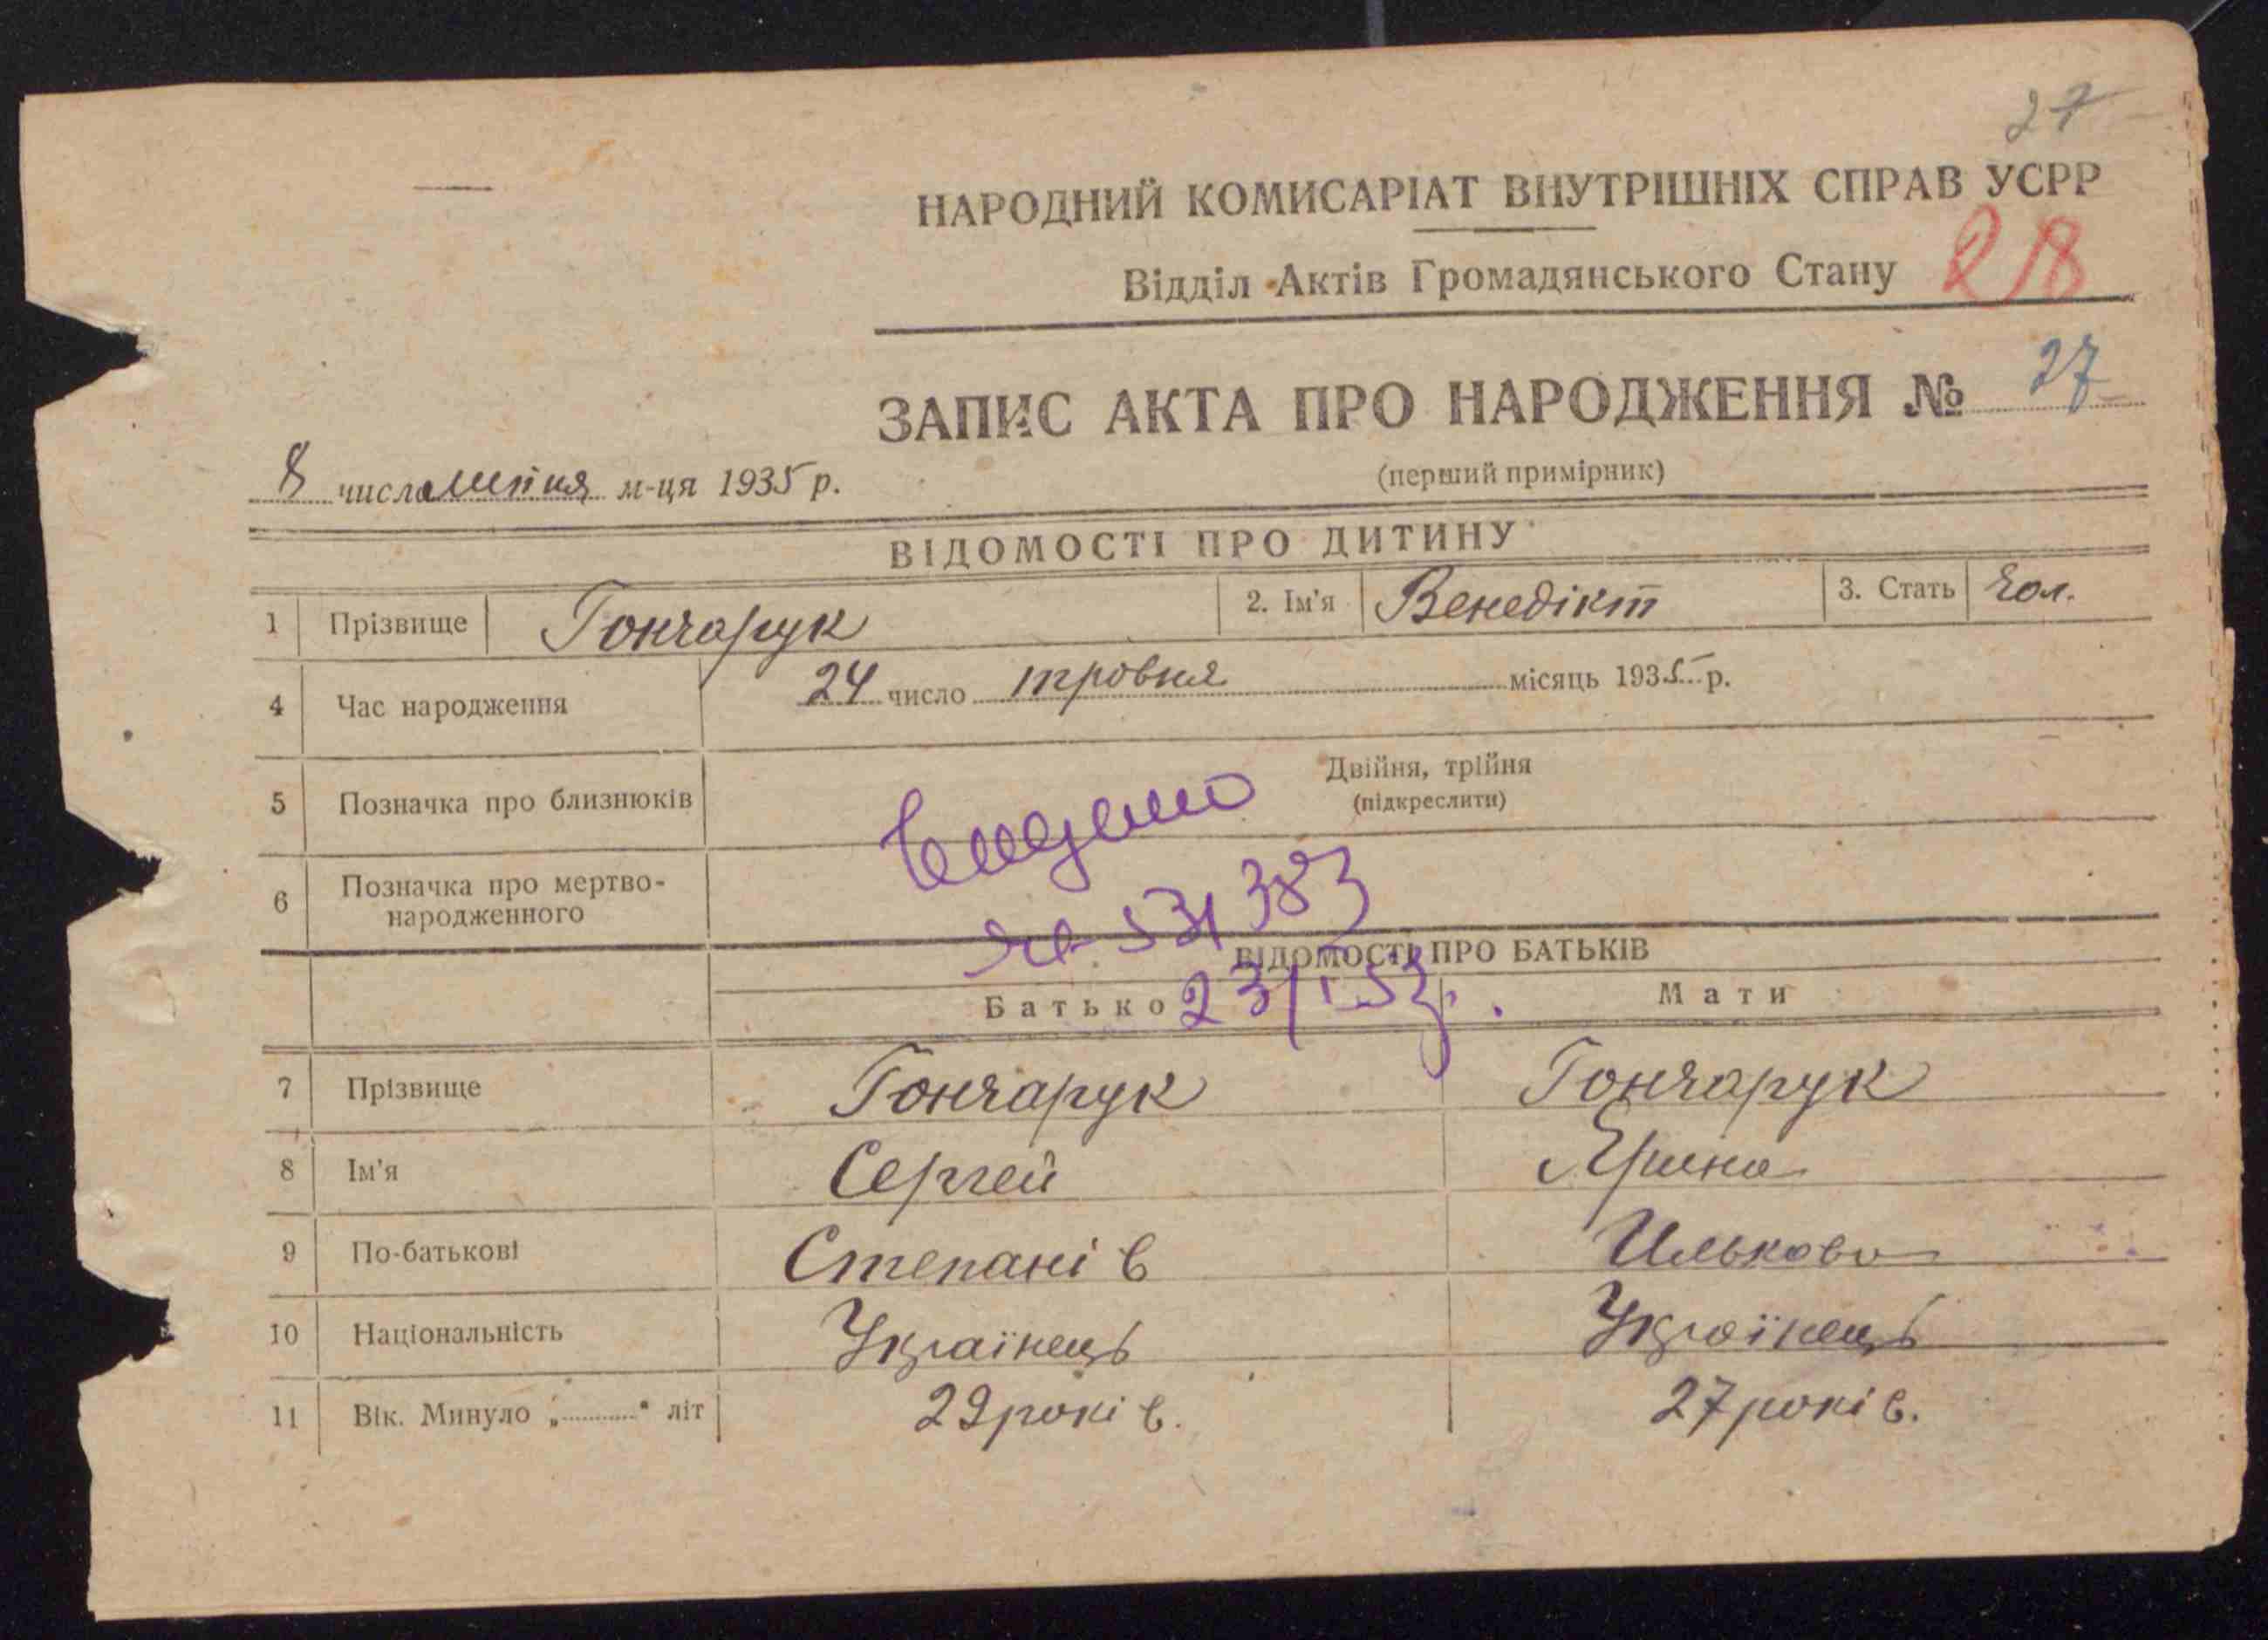 27
НАРОДНИЙ КОМИСАРІАТ ВНУТРІШНІХ СПРАВ УСРР
Відділ Актів Громадянського Стану 28
ЗАПИС АКТА ПРО НАРОДЖЕННЯ № 27
(перший примірник)
8 числа липня м-ця 1935 р.
ВІДОМОСТІ ПРО ДИТИНУ
1 Прізвище Гончарук 2. Ім'я Венедікт 3. Стать Чол.
4 Час народження 24 число тровня місяць 1935 р.
5 Позначка про близнюків Двійня, трійня
(підкреслити)
6 Позначка про мертво-
народженного
531383
ВІДОМОСТІ ПРО БАТЬКІВ
23/I 53р.
Батько Мати
7 Прізвище Гончарук Гончарук
8 Ім'я Сергей Ярина
9 По-батькові Степанів Илькова
10 Національність Українець Українець
11 Вік. Минуло „............" літ 29 років. 27 років.